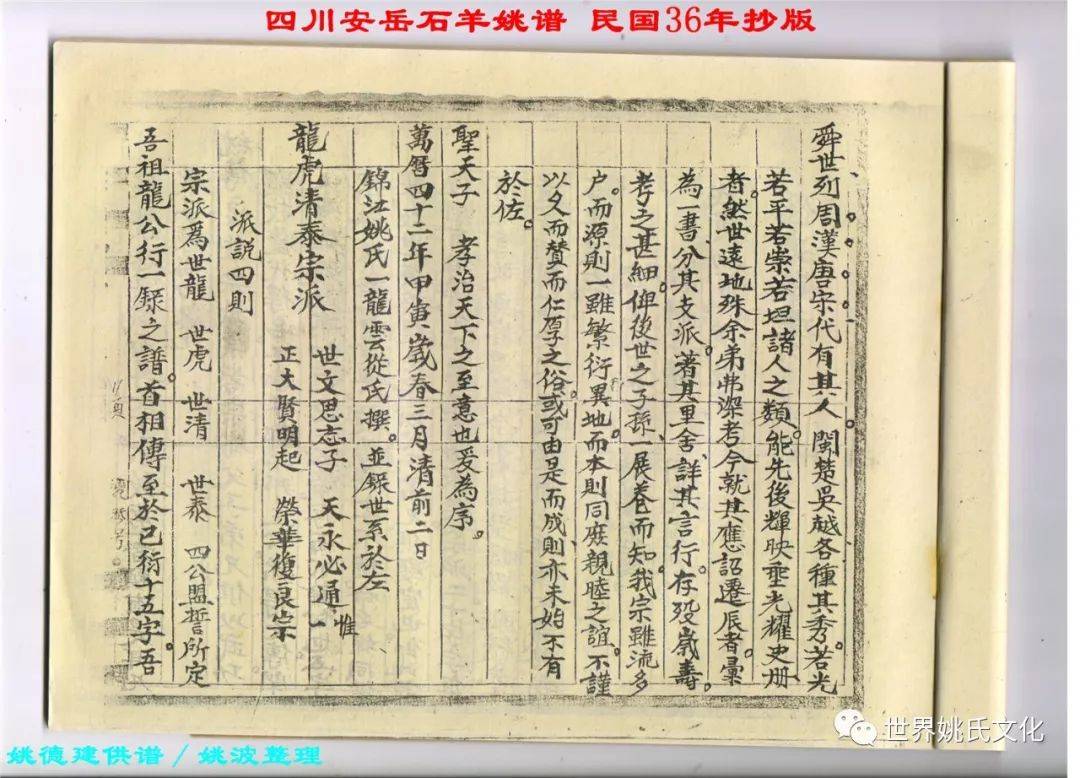 四川安岳石羊姚谱 民国36年抄版
舜世列周漢唐宋代有其人。閩楚吳越各種其秀。若光
若平若崇若坦諸人之類。能先後輝映垂光耀史册
者。然世遠地殊余弟弗深考今就其應詔遷辰者。彙
為一書、分其支派。著其里舍、詳其言行。存殁歲壽。
考之甚細。俾後世之子孫、一展卷而知。我宗雖流多
户。而源則一雖繁衍異地。而本則同庶親睦之誼。不謹
以久而替而仁厚之俗。或可由是而成則亦未始不有
於佐。
聖天子 孝治天下之至意也爰為序。
萬曆四十二年甲寅歲春三月清前二日
錦江姚氏一龍雲從氏撰。並録世系於左
龍虎清泰宗派 世文思志子 天永必通一惟
正大賢明起 榮華復良宗
派説四則
宗派爲世龍 世虎 世清 世泰 四公盟誓所定
吾祖龍公行一録之譜。首相傳至於已衍十五字。吾
世界姚氏文化
姚德建供谱 / 姚波整理